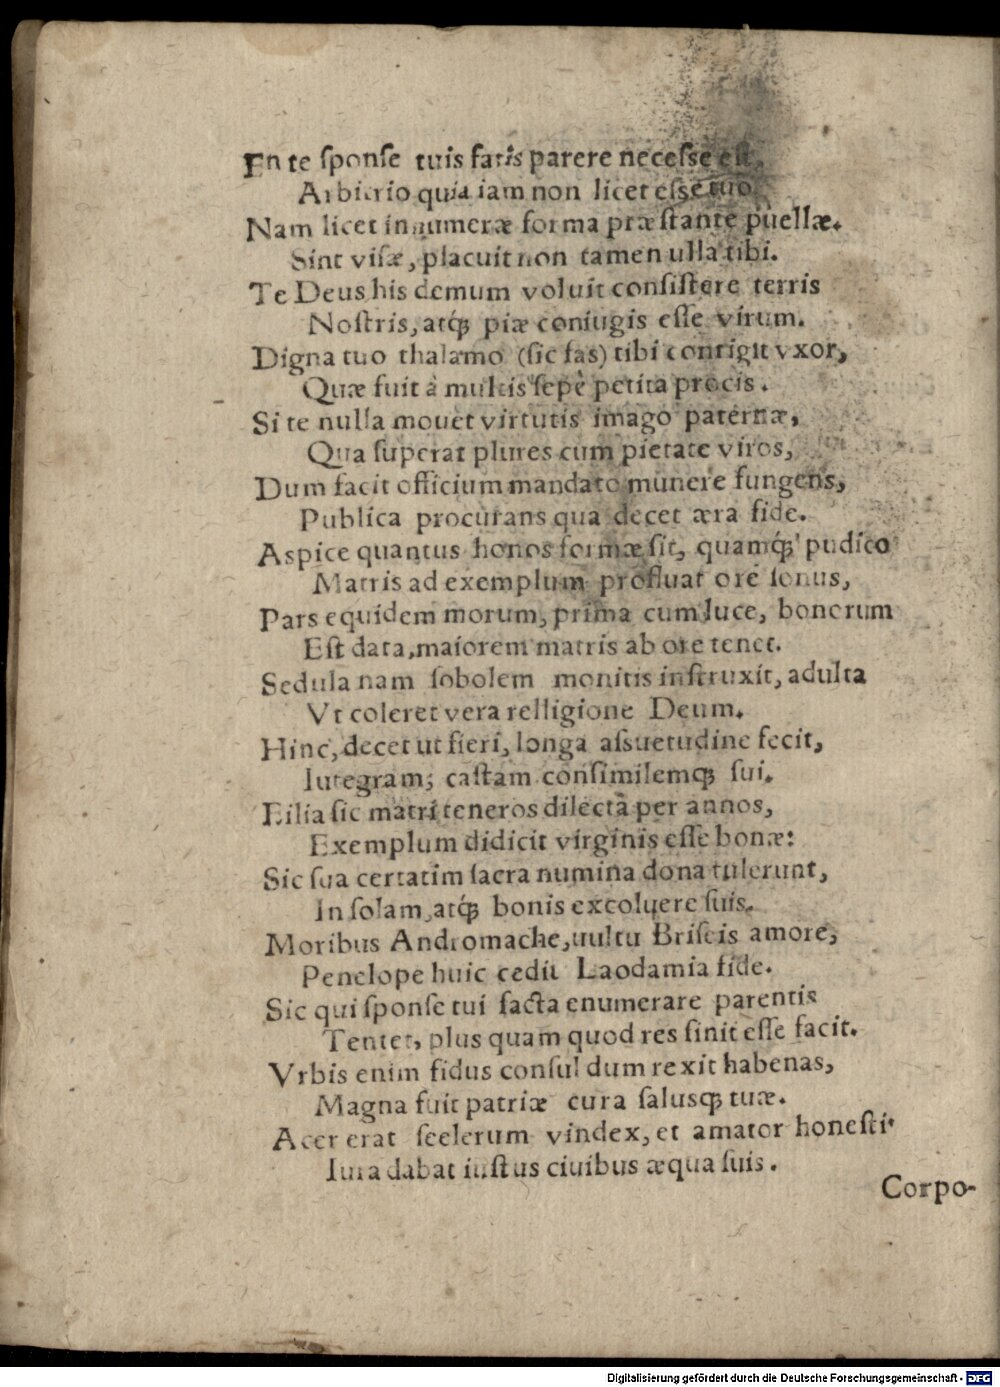 En te ſponſe tuis fatis parere neceſſe eſt,
Arbitrio quia iam non licet eſſe tuo.
Nam licet innumeræ forma præſtante puellæ.
Sint viſæ, placuit non tamen ulla tibi.
Te Deus his demum voluit conſiſtere terris
Noſtris, atq́; piæ coniugis eſſe virum.
Digna tuo thalamo (ſic fas) tibi contigit vxor,
Quæ fuit à multis ſepè petita procis.
Si te nulla mouet virtutis imago paternæ,
Qua ſuperat plures cum pietate viros,
Dum facit officium mandato munere fungens,
Publica procurans qua decet æra fide.
Aspice quantus honos formæ ſit, quamq́; pudico
Matris ad exemplum profluat ore ſonus,
Pars equidem morum, prima cum luce, bonorum
Eſt data, maiorem matris ab ore tenet.
Sedula nam ſobolem monitis inſtruxit, adulta
Vt coleret vera relligione Deum.
Hinc, decet ut fieri, longa aſsuetudine fecit,
Iutegram; caſtam conſimilemq; ſui.
Eilia ſic matri teneros dilecta per annos,
Exemplum didicit virginis eſſe bonæ:
Sic ſua certatim ſacra numina dona tulerunt,
In ſolam, atq́; bonis excoluere ſuis.
Moribus Andromache, uultu Briſeis amore,
Penelope huic cedit Laodamia fide.
Sic qui ſponſe tui facta enumerare parentis
Tentet, plus quam quod res ſinit eſſe facit.
Vrbis enim fidus conſul dum rexit habenas,
Magna fuit patriæ cura ſalusq; tuæ.
Acer erat ſcelerum vindex, et amator honeſti
Iura dabat iuſtus ciuibus æqua ſuis.
Corpo-
Digitalisierung gefördert durch die Deutsche Forschungsgemeinschaft - DFG